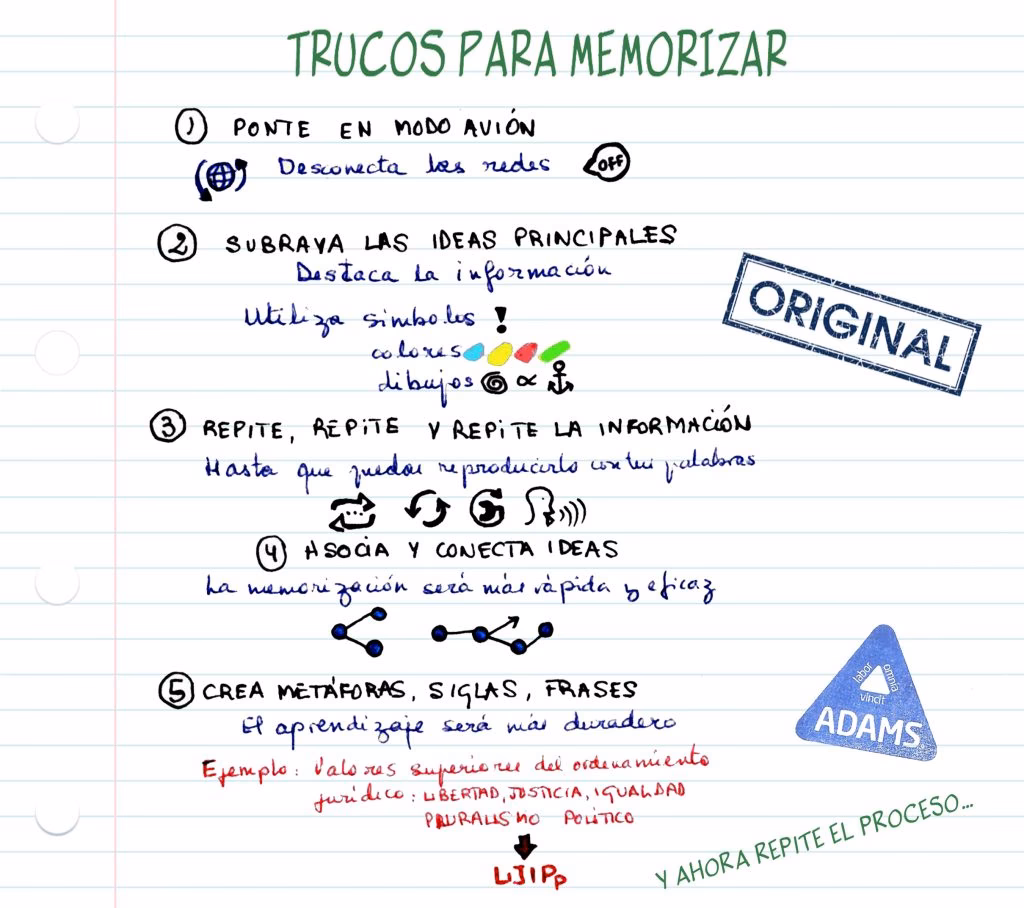 TRUCOS PARA MEMORIZAR
1 PONTE EN MODO AVIÓN
Desconecta las redes OFF
2 SUBRAYA LAS IDEAS PRINCIPALES
Destaca la información
ORIGINAL
Utiliza símbolos !
colores
dibujos
3 REPITE, REPITE Y REPITE LA INFORMACIÓN
Hasta que puedas reproducirlo con tus palabras
4 ASOCIA Y CONECTA IDEAS
La memorización será más rápida y eficaz
5 CREA METÁFORAS, SIGLAS, FRASES
El aprendizaje será más duradero
labor omnia vincit
ADAMS
Ejemplo: Valores superiores del ordenamiento
jurídico: LIBERTAD, JUSTICIA, IGUALDAD
PLURALISMO POLÍTICO
LJIPp
Y AHORA REPITE EL PROCESO...